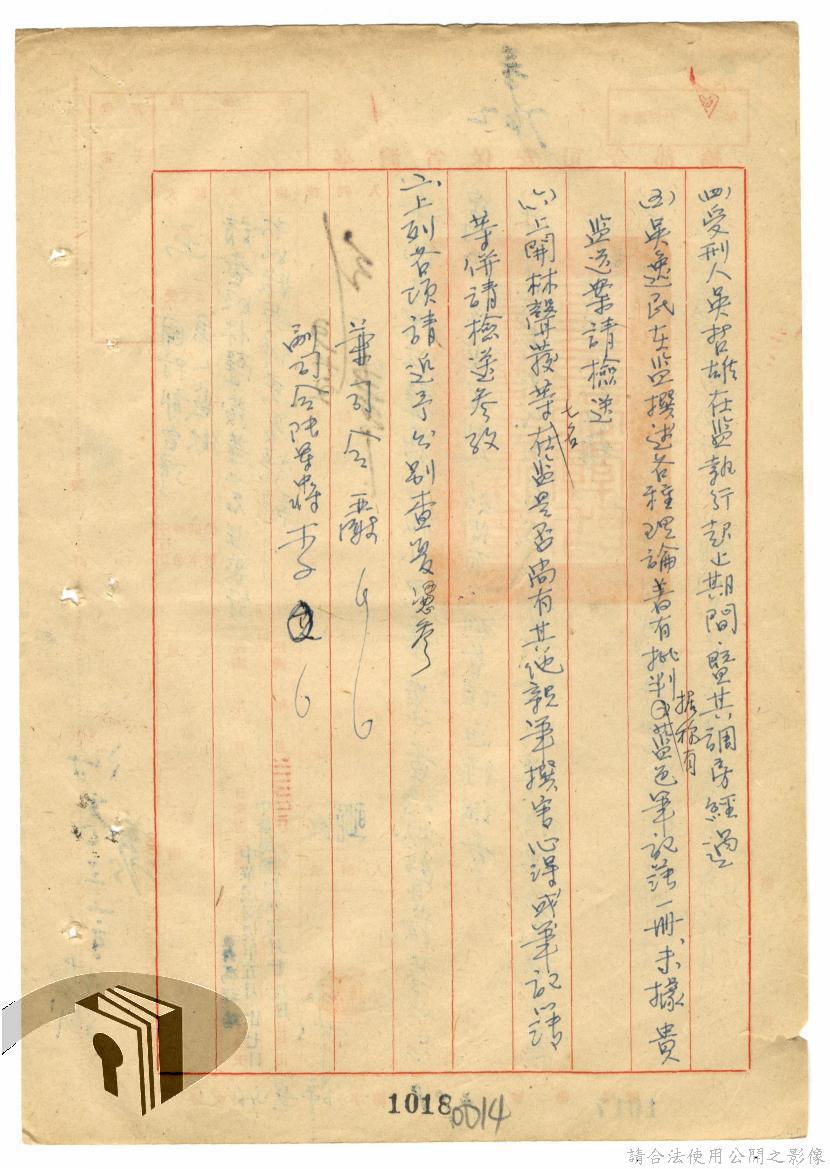 (四)受刑人吳哲雄在監執行起止期間暨其調房經過
(五)吳逸民在監撰述各種理論著有批判據稱有藍色筆記簿一冊未據貴
監送業請檢送
(六)上開林聲發等七名在監是否尚有其他親筆撰寫心得或筆記簿
等併請檢送參攷
二、上列各項請迅予分別查復憑參
兼司令
副司令陸軍中將李
1018
0014
請合法使用公開之影像